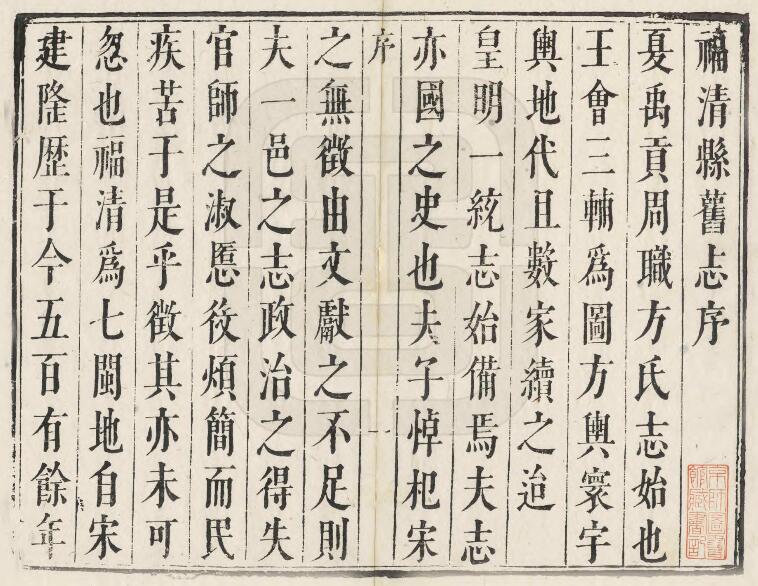 福清縣舊志序
夏禹貢周職方氏志始也
王會三輔為圖方輿寰宇
輿地代且數家續之迨
皇明一統志始備焉夫志
亦國之史也夫子悼杞宋
序
一
之無徵由文獻之不足則
夫一邑之志政治之得失
官師之淑慝役煩簡而民
疾苦于是乎徵其亦未可
忽也福清為七閩地自宋
建隆歴于今五百有餘年